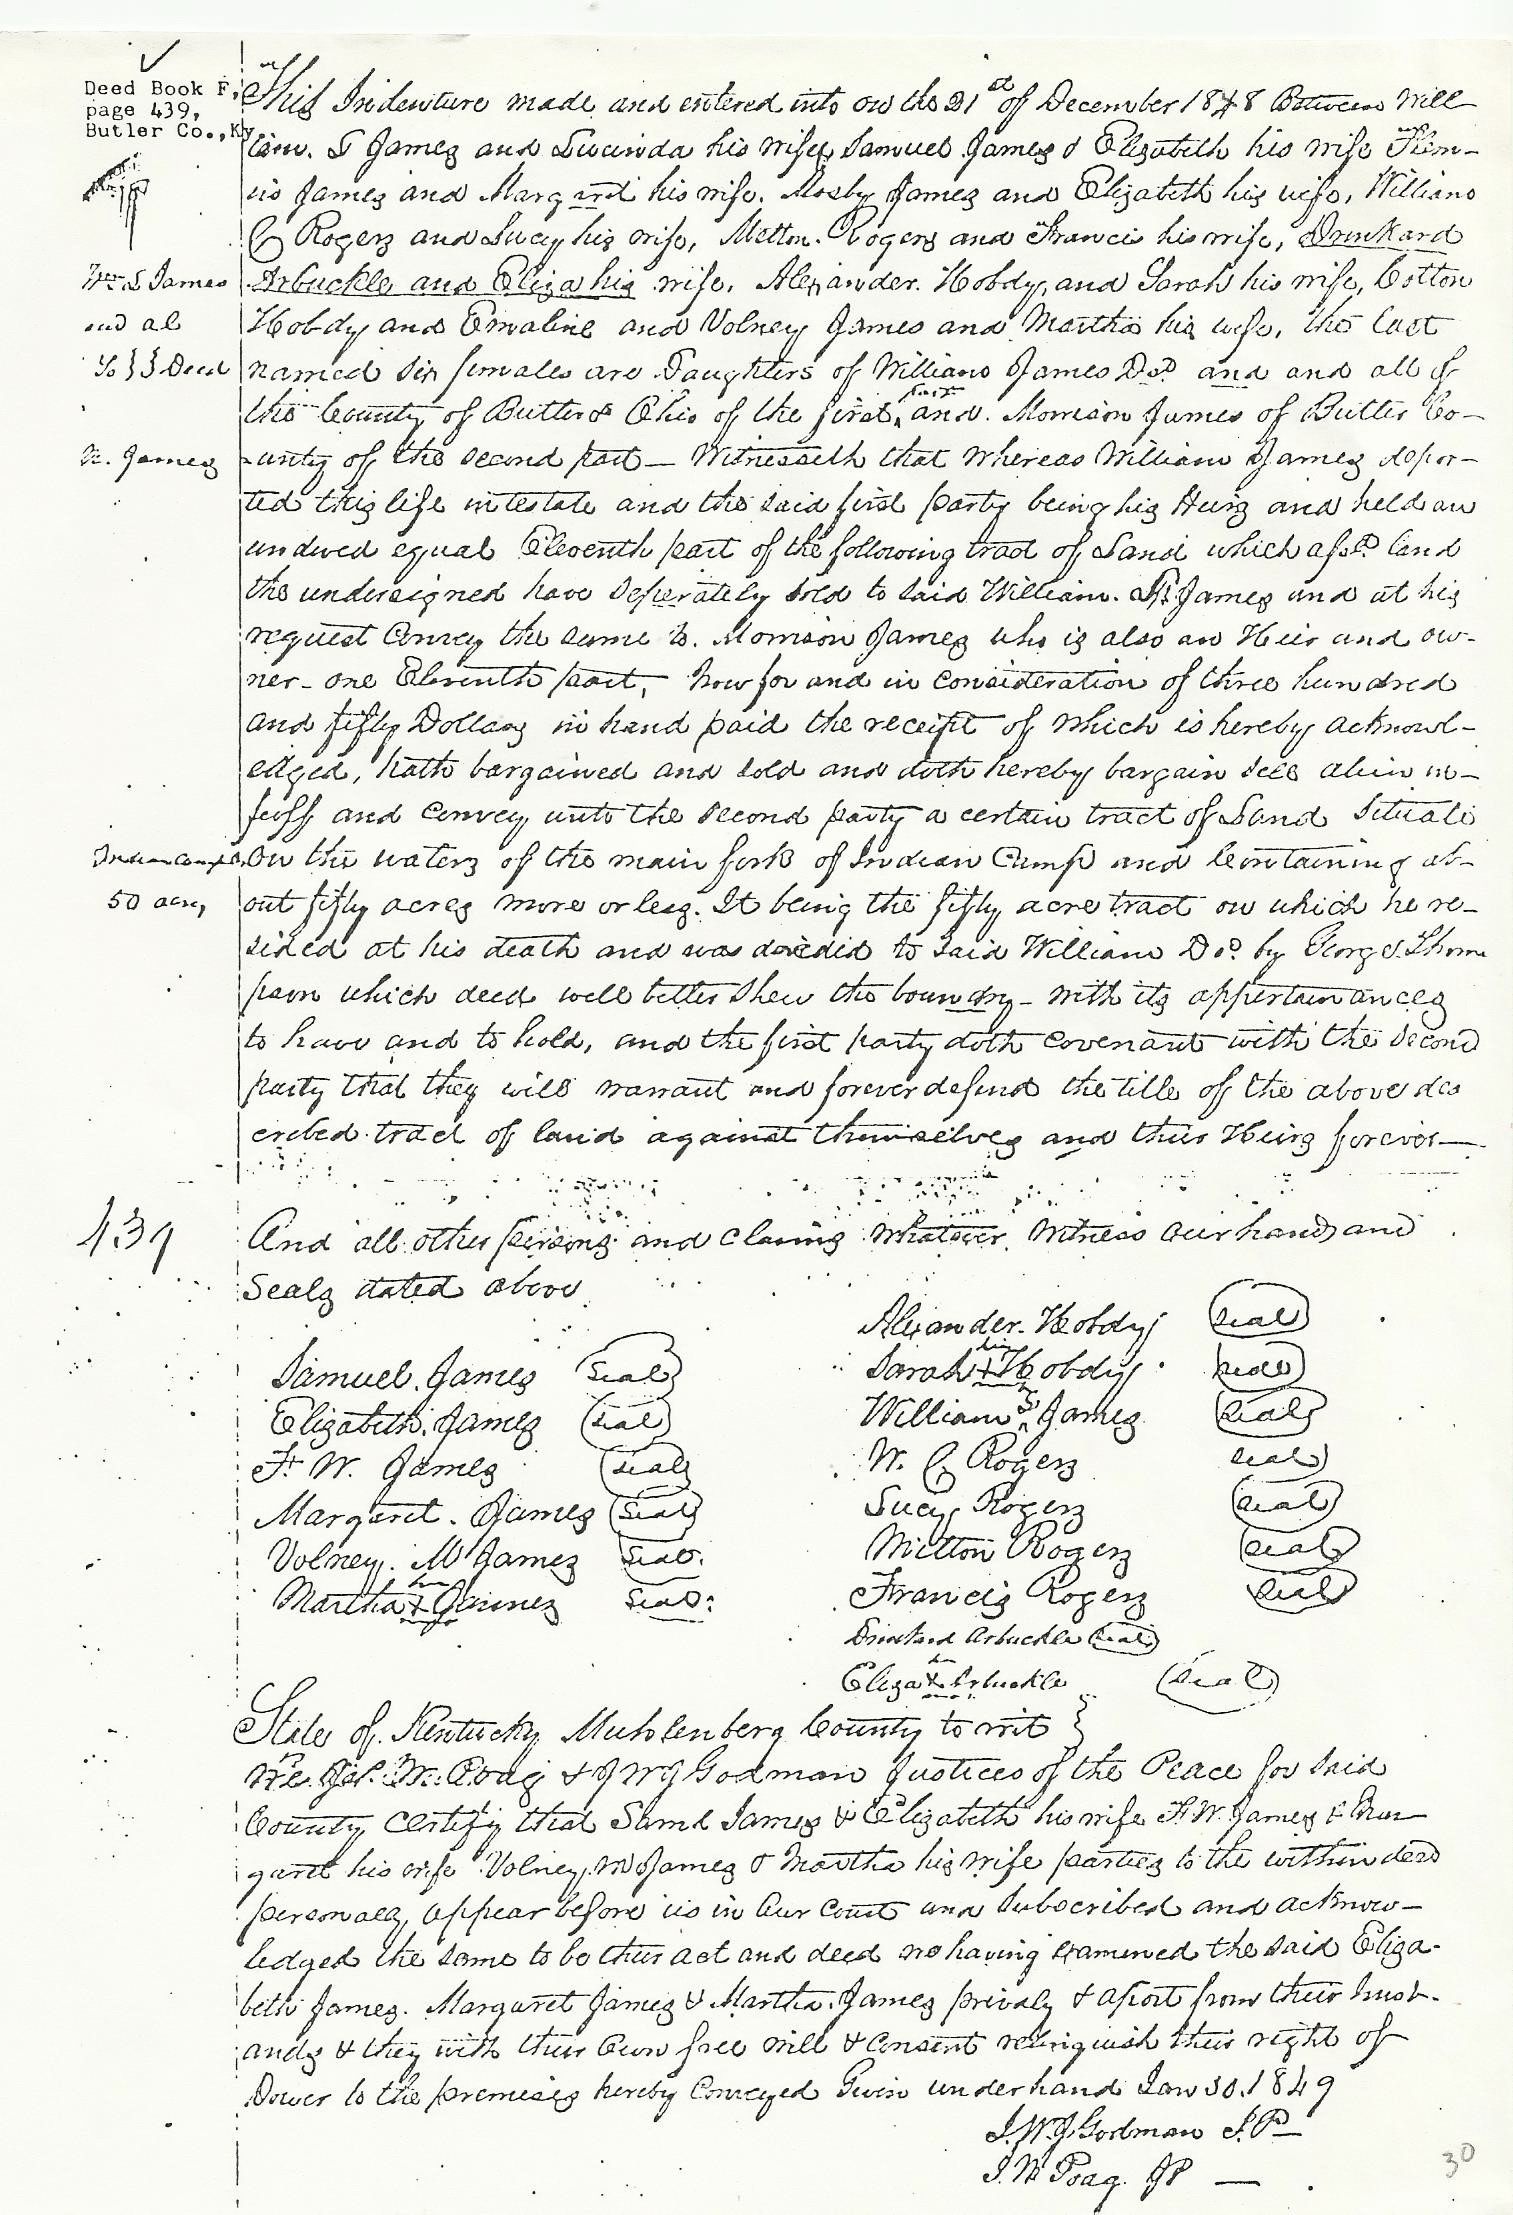 Deed Book F,
page 439,
Butler Co., Ky.
This Indenture made and entered into on the 21st of December 1848 Between Will-
iam. S James and Lucinda his wife, Samuel James & Elizabeth his wife Flem-
in James and Margaret his wife. Mosby James and Elizabeth his wife, William
C Rogers and Lucy his wife, Milton. Rogers and Francis his wife, Drinkard
Wm S James
Arbuckle and Eliza his wife. Alexander. Hobdy, and Sarah his wife, Cotton
and al
Hobdy and Emaline and Volney James and Martha his wife, the last
To } } Deed
named six females are Daughters of William James Dsd and and all of
the County of Butler & Ohio of the first part and. Morrison James of Butler Co-
M. James
unty of the second part - Witnesseth that whereas William James depar-
ted this life intestate and the said first party being his Heirs and held an
undived equal Eleventh part of the following tract of Land which afsd land
the undersigned have seperately sold to said William. S James and at his
request Convey the same to. Morrison James who is also an Heir and ow-
ner - one Eleventh part, Now for and in consideration of three hundred
and fifty Dollars in hand paid the receipt of which is hereby acknowl-
edged, hath bargained and sold and doth hereby bargain sell alien in-
feoff and convey unto the second party a certain tract of Land Situate
Indian Camp
on the waters of the main fork of Indian Camp and Containing ab-
50 acres
out fifty acres more or less. It being the fifty acre tract on which he re-
sided at his death and was deeded to said William Dsd. by George Thom
pson which deed will better shew the boundry - with its appertainances
to have and to hold, and the first party doth covenant with the second
party that they will warrant and forever defend the title of the above des
cribed tract of land against themselves and their Heirs forever —
439
And all other persons and claims whatever. Witness our hands and
Seals dated above
Alexander. Hobdy seal
Samuel. James seal
Sarah her + Hobdy seal
Elizabeth. James seal
William S James seal
F. W. James seal
W. C Rogers seal
Margaret. James seal
Lucy Rogers seal
Volney. M James seal
Milton Rogers seal
Martha her + James seal
Francis Rogers seal
Drinkard Arbuckle seal
Eliza her + Arbuckle seal
State of Kentucky Muhlenberg County to wit }
We Jas. W. Poag & J W J Godman Justices of the Peace for said
County Certify that Saml James & Elizabeth his wife F. W. James & Mar-
garet his wife Volney M James & Martha his wife parties to the within deed
personaly appear before us in our county and subscribed and acknow-
ledged the same to be their act and deed we having examened the said Eliza-
beth James. Margaret James & Martha. James privaly & apart from their husb-
ands & they with their own free will & consent relinquish their right of
Dower to the premises hereby conveyed Given under hand Jan 30. 1849
J. W. J Godman J. P —
J. W Poag. JP —
30